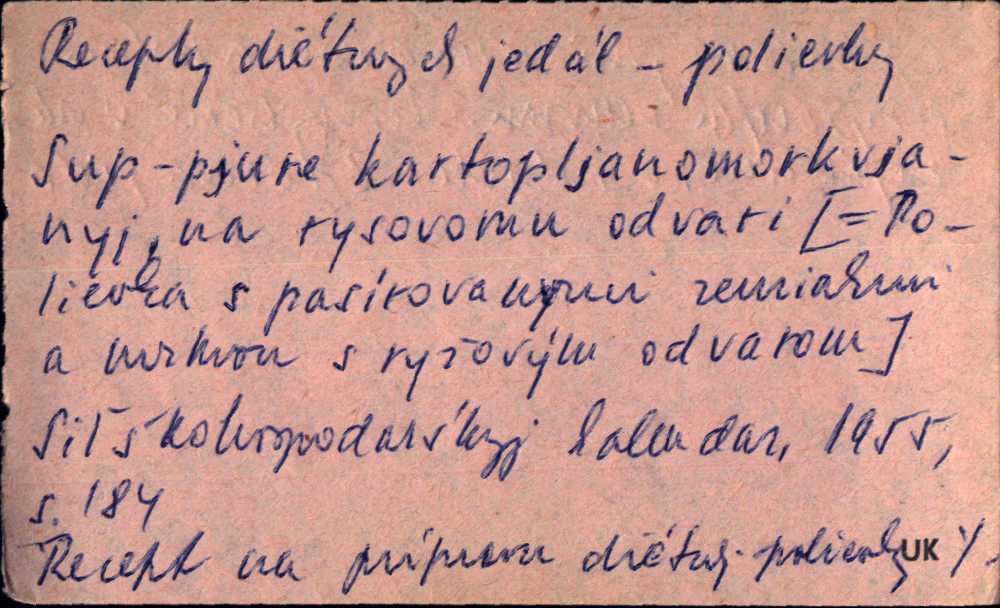 Recepty diétnych jedál – polievky
Sup-pjure kartopljanomorkvja-
nyj, na rysovomu odvari [= Po-
lievka s pasírovanými zemiakmi
a mrkvou s ryžovým odvarom]
Siľśkohospodarśkyj kalendar, 1955,
s. 184
Recept na prípravu diétnej polievky UK